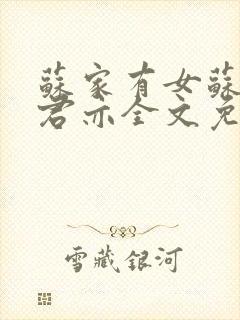 蘇家有女蘇
君亦全文免
雪藏銀河